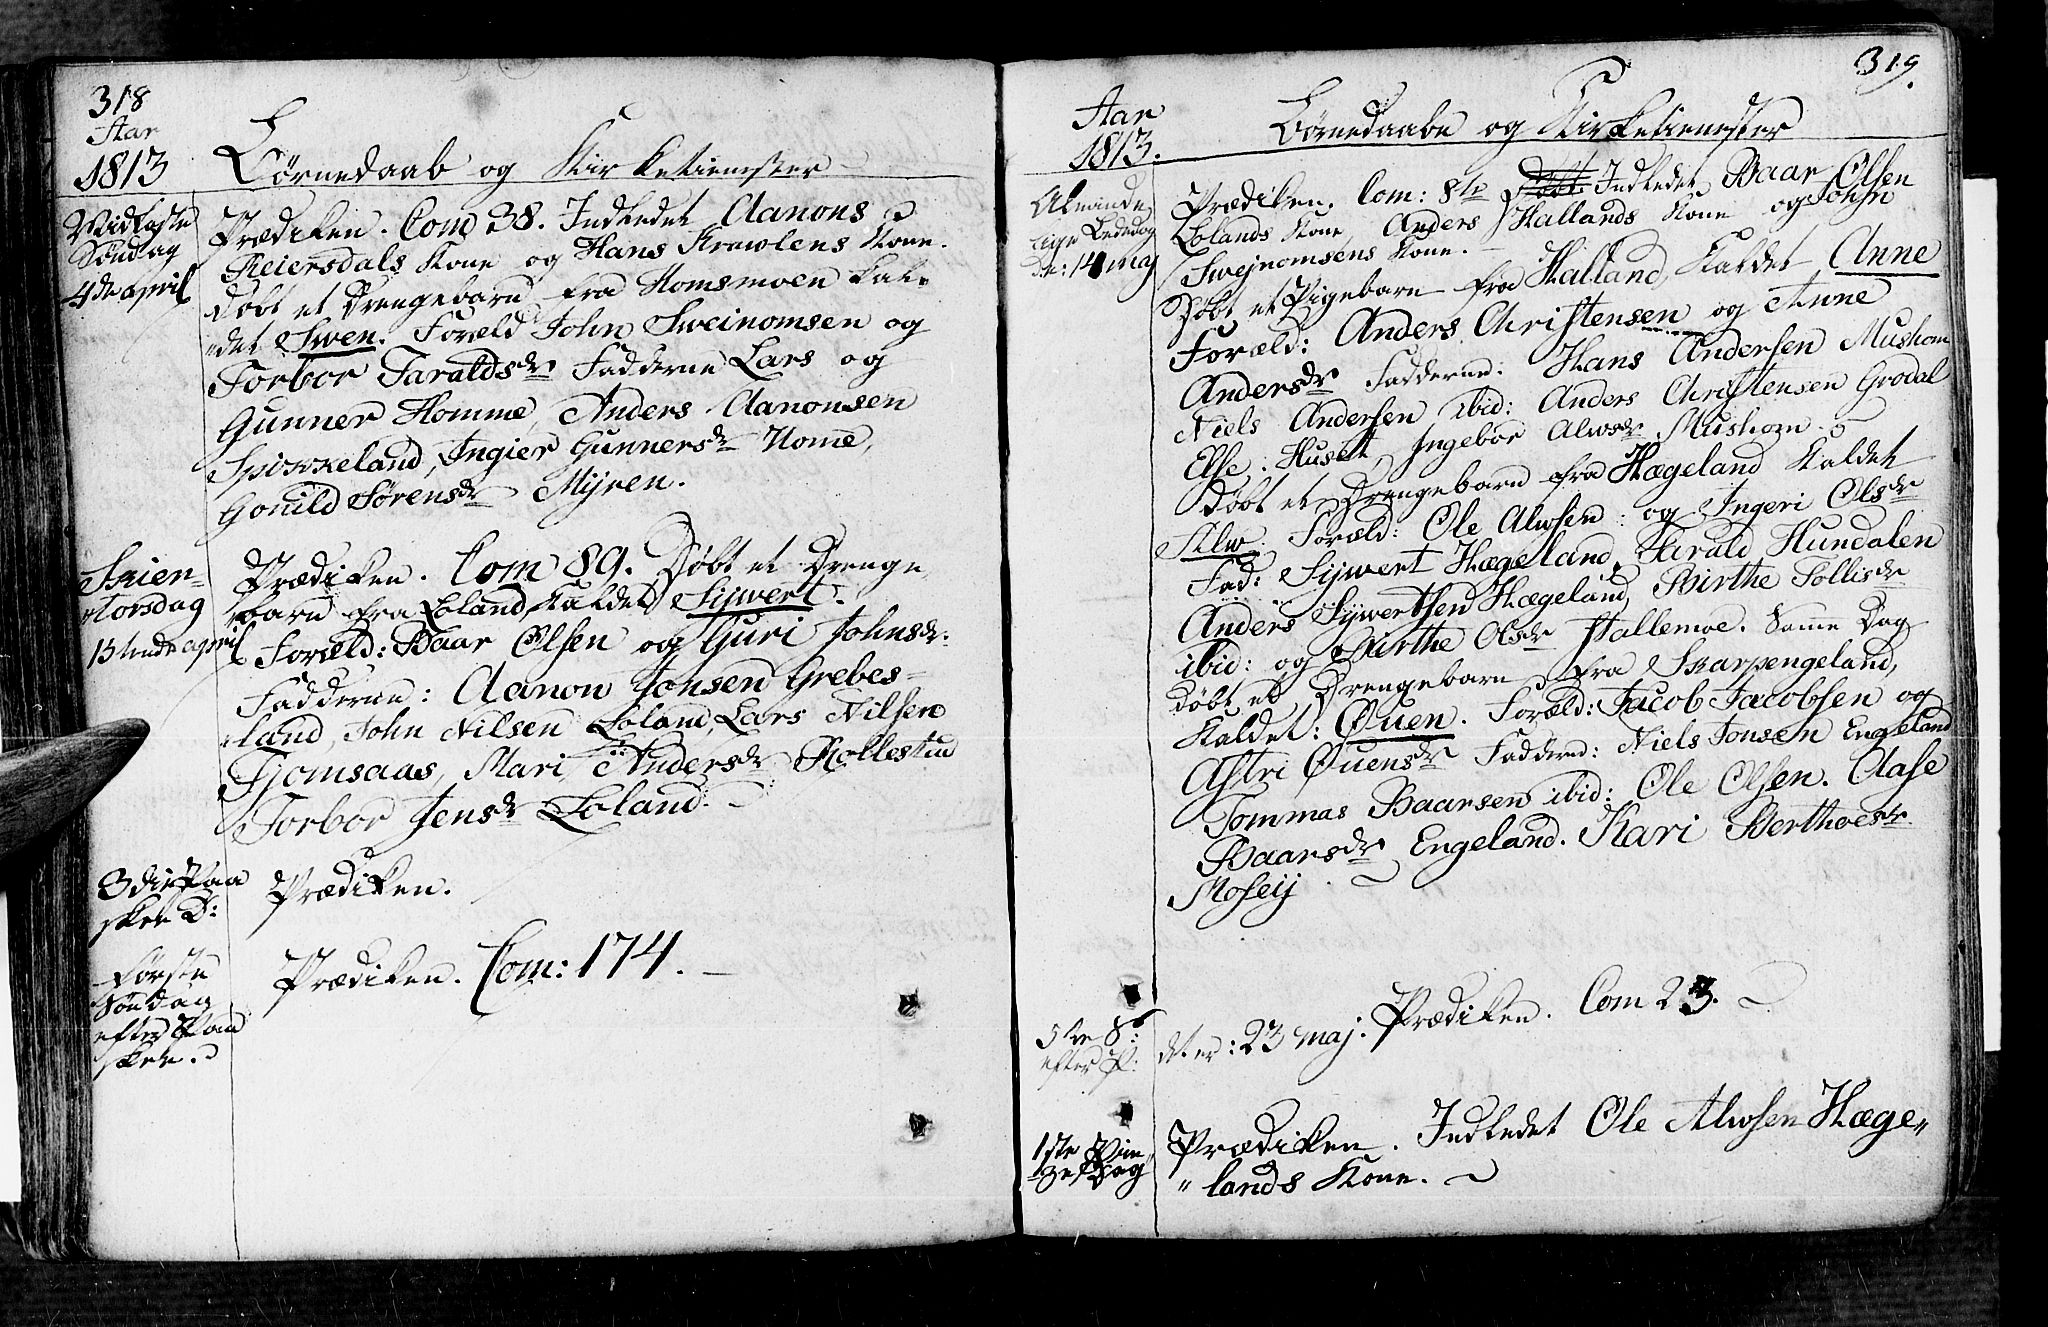 318
Aar
1813
Børnedaab og Kirketienester
Midfaste
Søndag
4de april
Prædiken. Com 38. Indledet Aanons
Reiersdals Kone og Hans Krawlens Kone.
Døbt et Drengebarn fra Homsmoen kal-
det Swen. Foræld John Sweinomsen og
Torbor Taraldsdr Fadderne Lars og
Gunner Homme, Anders Aanonsen
Spikkeland, Ingier Gunnersdr Home,
Gonild Sørensdr Mijren.
Skier-
torsdag
15tende april
Prædiken. Com 89. Døbt et Drenge
barn fra Loland, kaldet Sijwert.
Foræld: Baar Olsen og Guri Johnsdr:
Fadderne: Aanon Jonsen Grebes-
land, John Nilsen Loland, Lars Nilsen
Tjomsaas, Mari Andersdr Rollestad
Torbor Jensdr Loland.
3die Paa
sken D:
Prædiken.
Første
Søndag
efter Paa
sken.
Prædiken. Com: 174.
319.
Aar
1813.
Børnedaabe og Kirketienester
Almande
lige Bededag
de: 14 maj
Prædiken. Com: 8te Døbt Indledet Baar Olsen
Lolands Kone, Anders Hallands Kone og John
Swejnomsens Kone.
Døbt et Pigebarn fra Halland, Kaldet Anne
Foræld: Anders Christensen og Anne
Andersdr Fadderne: Hans Andersen Mushom
Niels Andersen ibid: Anders Christensen Grodal
Else Huset, Ingebor Alwsdr Mushom.
Døbt et Drengebarn fra Hægeland Kaldet
Alw. Foræld: Ole Alwsen og Ingeri Olsdr
Fad: Sijwert Hægeland, Harald Hundalen
Anders Sijwertsen Hægeland, Birthe Tollisdr
ibid: og Birthe Olsdr Hallemoe. Samme Dag
døbt et Drengebarn fra Skarpengeland,
Kaldet: Øuen. Foræld: Jacob Jacobsen og
Astri Øuensdr Fadderne: Niels Jonsen Engeland
Tommas Baarsen ibid: Ole Olsen. Aase
Baarsdr Engeland. Kari Berthoesdr
Moseij.
5te S:
efter P:
det er: 23 maj: Prædiken. Com 23.
1ste Pin
zesdag
Prædiken. Indledet Ole Alwsen Hæge„
„lands Kone.